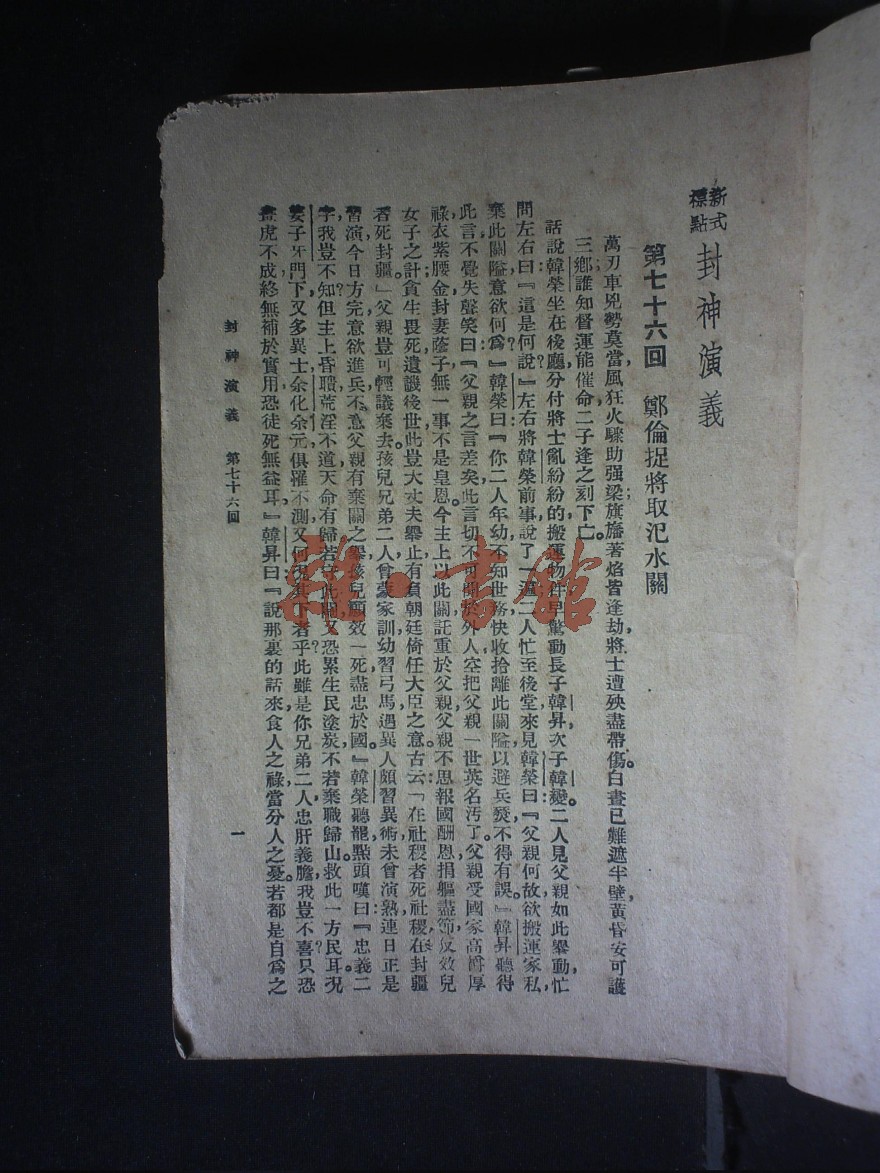 新式標點 封神演義
第七十六回 鄭倫捉將取汜水關
萬刃車兇勢莫當，風狂火驟助强梁；旗旛著焰皆逢劫，將士遭殃盡帶傷。白晝已難遮半壁，黃昏安可護
三鄉；誰知督運能催命，二子逢之刻下亡。
話說韓榮坐在後廳，分付將士，亂紛紛的搬運物件，早驚動長子韓昇，次子韓變。二人見父親如此舉動，忙
問左右曰：『這是何說？』左右將韓榮前事說了一遍，二人忙至後堂，來見韓榮曰：『父親何故欲搬運家私，
棄此關隘，意欲何爲？』韓榮曰：『你二人年幼，不知世務，快收拾離此關隘，以避兵燹，不得有誤。』韓昇聽得
此言，不覺失聲笑曰：『父親之言差矣！此言切不可聞於外人，空把父親一世英名汚了。父親受國家高爵厚
祿，衣紫腰金，封妻蔭子，無一事不是皇恩。今主上以此關託重於父親，父親不思報國酬恩，捐軀盡節，反效兒
女子之計，貪生畏死，遺譏後世，此豈大丈夫舉止，有負朝廷倚任大臣之意。古云：「在社稷者死社稷，在封疆
者死封疆。」父親豈可輕議棄去。孩兒兄弟二人，曾蒙家訓，幼習弓馬，遇異人，頗習異術，未曾演熟，連日正是
習演，今日方完，意欲進兵，不意父親有棄關之舉，孩兒願效一死，盡忠於國。』韓榮聽罷，點頭嘆曰：『忠義二
字，我豈不知？但主上昏聵，荒淫不道，天命有歸，若守此關，又恐累生民塗炭，不若棄職歸山，救此一方民耳。況
姜子牙門下，又多異士，余化，余元，俱罹不測，又何況其下者乎？此雖是你兄弟二人忠肝義膽，我豈不喜？只恐
畫虎不成，終無補於實用，恐徒死無益耳。』韓昇曰：『說那裏的話來，食人之祿，當分人之憂。若都是自爲之
封神演義 第七十六回
一
雜·書館